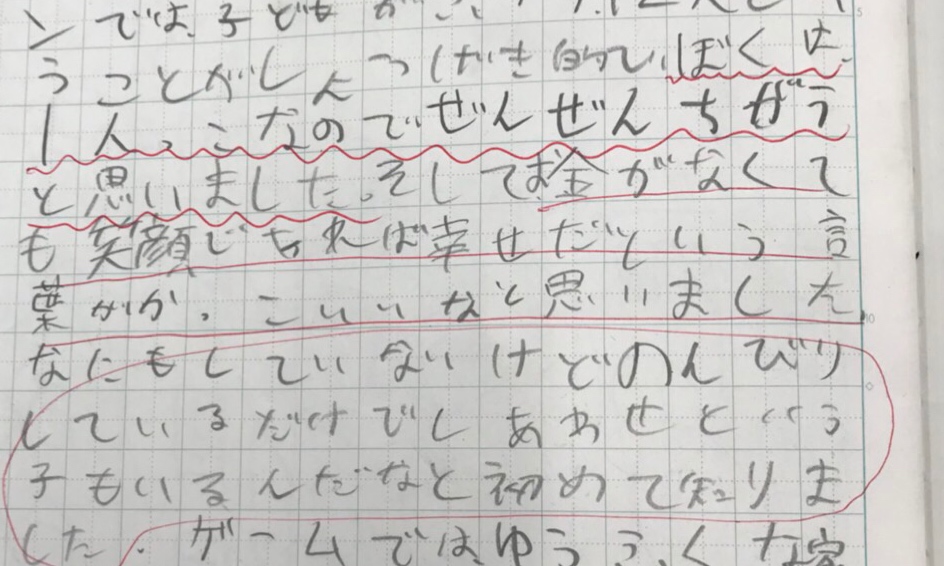 ンでは子どもが
うことがしょうげき的で、ぼくは
1人っこなのでぜんぜんちがう
と思いました。そしてお金がなくて
も笑顔であれば幸せだという言
葉がかっこいいなと思いました
なにもしていないけどのんびり
しているだけでしあわせという
子もいるんだなと初めて知りま
した。ゲームではゆうふくな家